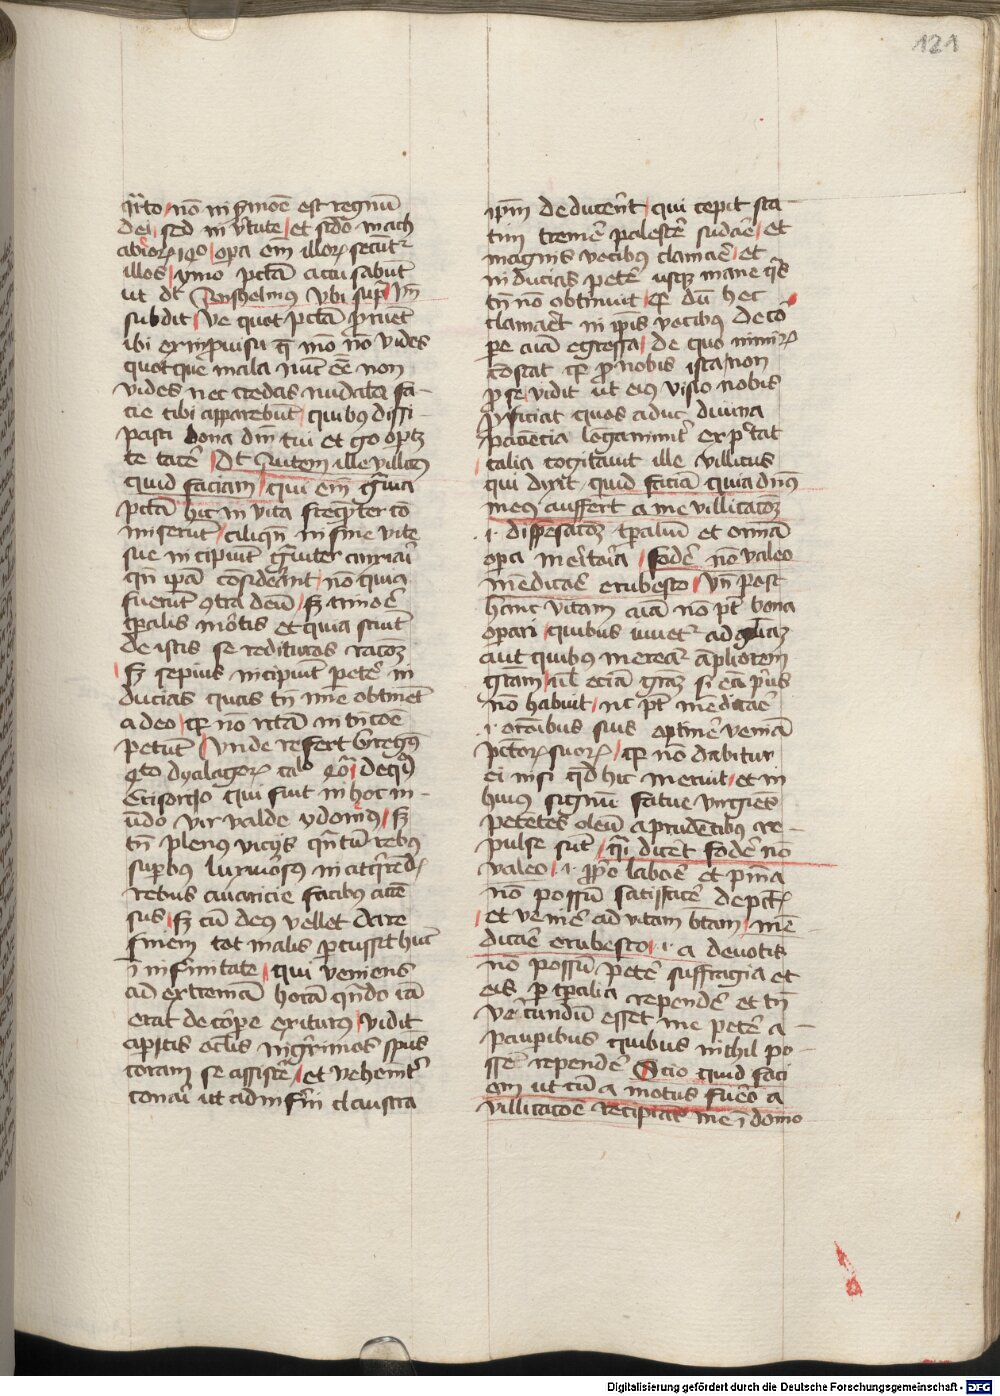 121
q͛rto nō in ẜmōe est regnū
dei sed in v͛tute et scd̄o mach
abior͛ 190 opa em̄ illor͛ secūt͛
illos ymo pctā accusabūt
ut dt̄ Anshelmus vbi sup͛ vn̄
subdit ve quot pctā p͛ruēt
ibi ex īprouisu q̄ mō nō vides
quotque mala nūc eē̄ non
vides nec credas nudata fa-
cie tibi apparebūt quibus dissi-
pasti bona dn̄i tui et g̊o oportz
te tacē Dt̄ Autem ille villicus
quid faciam qui em̄ g̊uia
pctā hic in vita freq̄ter cō
miserūt aliqn̄ in fine vite
sue incipiūt g̊uiter anxiari
qn̄ ipā cōsiderāt nō quia
fuerūt 9tra deū sz timōe
tp̄alis mortis et quia sciūt
de istis se redituros rac̄oz
sz sepius incipiūt petē in
ducias quas tn̄ mīe obtinēt
a deo qz nō ritā int̄ncōe
petūt Vnde refert Greg9
q̊to dyalagor͛ ca͞lo de q̊d̄
Crisorio qui fuit in hoc m-
ūdo vir valde ydoneus sz
tn̄ plenus vicijs qn̄tū rebus
sup̄bus luxuri͞osus in acq͛rēd͛
rebus auaricie facibus accē
sus sz cū deus vellet dare
finem tot malis p̄cussit hūc
ī infirmitate qui veniens
ad extremā horā qn̄do iā
erat de corpe exiturus vidit
ap̄tis oc͞lis nig͛rimos sp̄us
coram se assistē et vehemēt͛
conari ut ad inferni claustra
ip̄m deducer͞et qui cepit sta-
tim tremē palescē sudāē et
magnis vocibus clamāē et
inducias petē usqz mane qs
tn̄ nō obtinuit qz dū hec
clamar͞et in ip̄is vocibus de co͞
pe aīa egressa de quo nimir͛
cōstat qz p̱ nobis ista non
p̱ se vidit ut eius visio nobis
p͛ficiat quos aduc diuina
paciencia longanimit͛ expectat
talia cogitauit ille villicus
qui dixit quid faciā quia dn̄us
meus auffert a me villicac̄oz
.i. dispēsac̄oz tp̄aliū et omnīā
opa meritoria fodē nō valeo
mēdicāē erubesco vn̄ post
hanc vitam aīa nō pt̄ bona
operari quibus viuet͛ ad gl̄iaz
aut quibus mereat͛ ampliorem
grām ul̄ eciā graz si eā prius
nō habuit nc̄ pt̄ mēdicāē
.i. orac̄oibus suis optinē veniā
pctor͛ suor͛ qz nō dabitur
ei nisi q̊d hic meruit et in
huius signū fatue virgies
petētes oleū a prudētibus re-
pulse sūt q͛i dicēt fodē nō
valeo .i. pp̊o laboē et penīa
nō possū satisfacē de pct͛
et venīē ad vitam btam mē
dicāē erubesco .i. a deuotis
nō possū petē suffragia et
eis p̱ tp̄alia rependē et tn̄
ve͛cundū esset me petē a
pauperibus quibus nihil po-
ssē rependē Scio quid faci
am ut cū amotus fuēo a
villicacōe recipiāt me ī domo
Digitalisierung gefördert durch die Deutsche Forschungsgemeinschaft - DFG